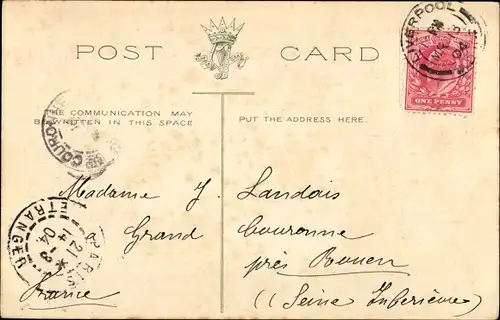 POST CARD
LIVERPOOL
04
ONE PENNY
THE COMMUNICATION MAY
BE WRITTEN IN THIS SPACE
PUT THE ADDRESS HERE.
COURONNE
PARIS
ETRANGER
04
Madame J. Landais
à Grand Couronne
près Rouen
France
(Seine Inférieure)